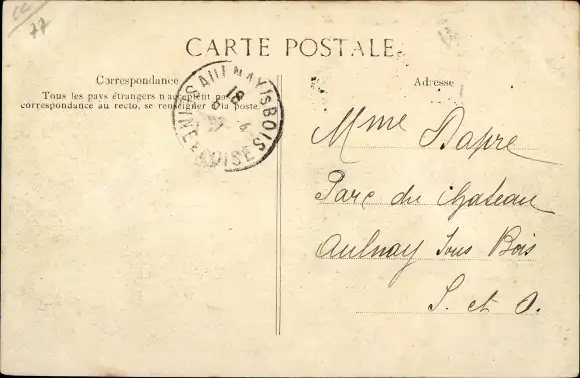 CC
77
CARTE POSTALE
Correspondance
Tous les pays étrangers n'acceptent pas de
correspondance au recto, se renseigner à la poste.
AULNAY LS BOIS
18
4
SEINE & OISE
Adresse
Mme Dapre
Parc du château
Aulnay Sous Bois
S. et O.